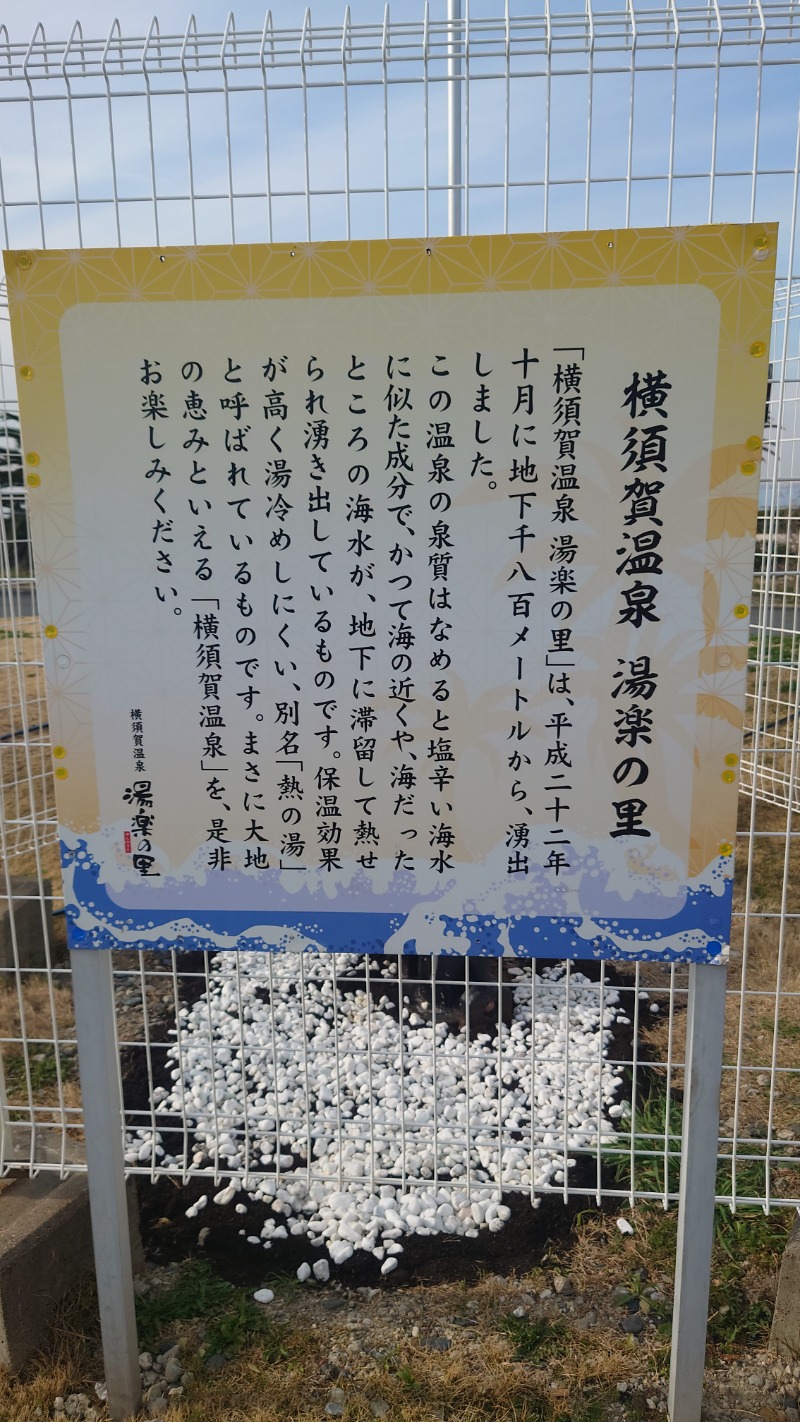 横須賀温泉 湯楽の里
「横須賀温泉 湯楽の里」は、平成二十二年
十月に地下千八百メートルから、湧出
しました。
この温泉の泉質はなめると塩辛い海水
に似た成分で、かつて海の近くや、海だった
ところの海水が、地下に滞留して熱せ
られ湧き出しているものです。保温効果
が高く湯冷めしにくい、別名「熱の湯」
と呼ばれているものです。まさに大地
の恵みといえる「横須賀温泉」を、是非
お楽しみください。
横須賀温泉
湯楽の里